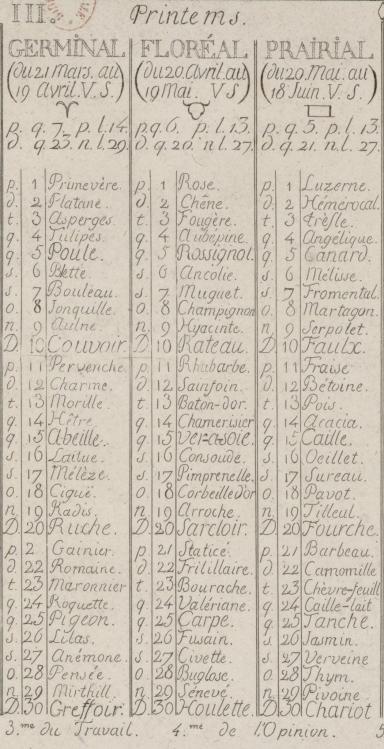 III.e Printems.
GERMINAL
(du 21 Mars. au
19 Avril. V. S.)
p. q. 7. p. l. 14.
d. q. 23. n. l. 29.
p. 1 Primevère.
d. 2 Platane.
t. 3 Asperges.
q. 4 Tulipes.
q. 5 Poule.
s. 6 Bette.
s. 7 Bouleau.
o. 8 Jonquille.
n. 9 Aulne.
D. 10 Couvoir.
p. 11 Pervenche.
d. 12 Charme.
t. 13 Morille.
q. 14 Hêtre.
q. 15 Abeille.
s. 16 Laitue.
s. 17 Mélèze.
o. 18 Ciguë.
n. 19 Radis.
D. 20 Ruche.
p. 2 Gainier.
d. 22 Romaine.
t. 23 Maronnier
q. 24 Roquette.
q. 25 Pigeon.
s. 26 Lilas.
s. 27 Anémone.
o. 28 Pensée.
n. 29 Mirthill.
D. 30 Greffoir.
FLORÉAL
(du 20 Avril. au
19 Mai. V S)
p. q. 6. p. l. 13.
d. q. 20. n. l. 27.
p. 1 Rose.
d. 2 Chêne.
t. 3 Fougère.
q. 4 Aubépine.
q. 5 Rossignol.
s. 6 Ancolie.
s. 7 Muguet.
o. 8 Champignon
n. 9 Hyacinte.
D. 10 Rateau.
p. 11 Rhubarbe.
d. 12 Sainfoin.
t. 13 Baton-dor.
q. 14 Chamerisier
q. 15 Ver-à-soie.
s. 16 Consoude.
s. 17 Pimprenelle.
o. 18 Corbeille dor
n. 19 Arroche.
D. 20 Sarcloir.
p. 21 Staticé.
d. 22 Fritillaire.
t. 23 Bourache.
q. 24 Valériane.
q. 25 Carpe.
s. 26 Fusain.
s. 27 Civette.
o. 28 Buglose.
n. 29 Sénevé.
D. 30 Houlette.
PRAIRIAL
(du 20. Mai. au
18 Juin. V. S.)
p. q. 5. p. l. 13.
d. q. 21. n. l. 27.
p. 1 Luzerne.
d. 2 Hémérocal.
t. 3 trèfle.
q. 4 Angélique.
q. 5 Canard.
s. 6 Mélisse.
s. 7 Fromental.
o. 8 Martagon.
n. 9 Serpolet.
D. 10 Faulx.
p. 11 Fraise
d. 12 Bétoine.
t. 13 Pois.
q. 14 Acacia.
q. 15 Caille.
s. 16 Oeillet.
s. 17 Sureau.
o. 18 Pavot.
n. 19 Tilleul.
D. 20 Fourche.
p. 21 Barbeau.
d. 22 Camomille
t. 23 Chèvre-feuill
q. 24 Caille-lait
q. 25 Tanche.
s. 26 Jasmin.
s. 27 Verveine
o. 28 Thym.
n. 29 Pivoine
D. 30 Chariot
3.me du Travail. 4.me de l'Opinion.